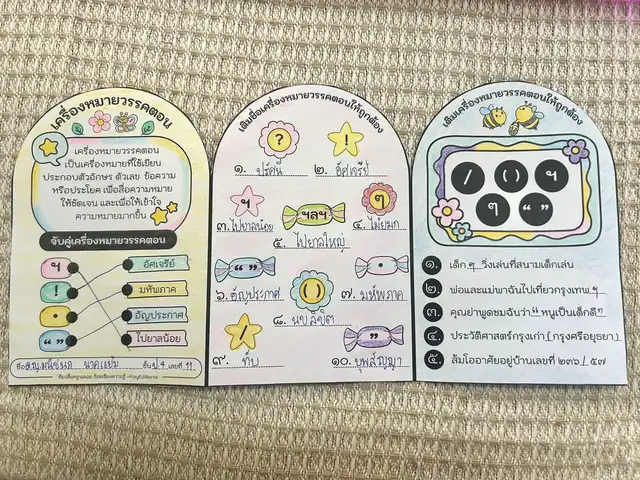 เครื่องหมายวรรคตอน
เครื่องหมายวรรคตอน
เป็นเครื่องหมายที่ใช้เขียน
ประกอบตัวอักษร ตัวเลข ข้อความ
หรือประโยค เพื่อสื่อความหมาย
ให้ชัดเจน และเพื่อให้เข้าใจ
ความหมายมากขึ้น
จับคู่เครื่องหมายวรรคตอน
ฯ อัศเจรีย์
! มหัพภาค
. อัญประกาศ
“ ” ไปยาลน้อย
ชื่อ ด.ญ. ชั้น ป.4 เลขที่ 11
เติมชื่อเครื่องหมายวรรคตอนให้ถูกต้อง
? !
๑. ปรัศนี ๒. อัศเจรีย์
ฯ ฯลฯ ๆ
๓. ไปยาลน้อย ๔. ไม้ยมก
๕. ไปยาลใหญ่
“ ” ( ) .
๖. อัญประกาศ ๗. มหัพภาค
๘. นขลิขิต
/ ”
๙. ทับ ๑๐. บุพสัญญา
เติมเครื่องหมายวรรคตอนให้ถูกต้อง
/ ( ) ฯ
ๆ “ ”
๑. เด็ก ๆ วิ่งเล่นที่สนามเด็กเล่น
๒. พ่อและแม่พาฉันไปเที่ยวกรุงเทพ ฯ
๓. คุณย่าพูดชมฉันว่า “ หนูเป็นเด็กดี ”
๔. ประวัติศาสตร์กรุงเก่า ( กรุงศรีอยุธยา )
๕. ส้มโออาศัยอยู่บ้านเลขที่ ๒๓๖ / ๕๗